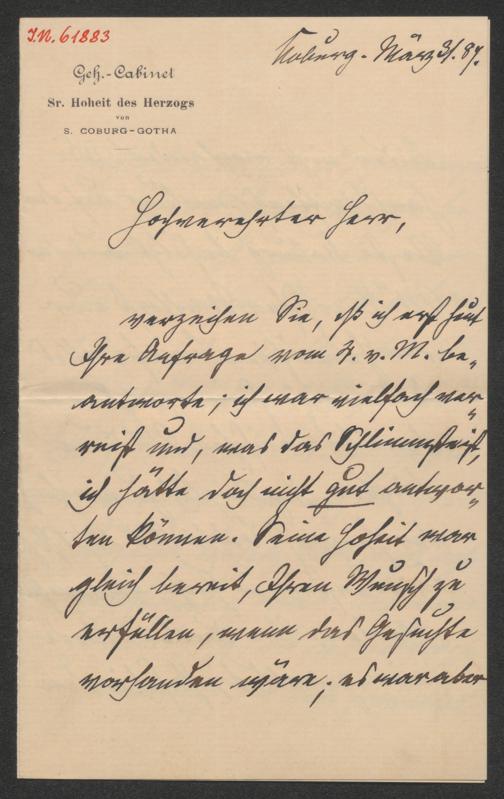 I.N. 61883
Geh.-Cabinet
Sr. Hoheit des Herzogs
von
S. COBURG-GOTHA
Koburg - März 31. 87.
Hochverehrter Herr,
verzeihen Sie, dß ich erst heut
Ihre Anfrage vom 3. v. M. be-
antworte; ich war vielfach ver-
reist und, was das Schlimmste ist,
ich hätte doch nicht gut antwor-
ten können. Seine Hoheit war
gleich bereit, Ihren Wunsch zu
erfüllen, wenn das Gesuchte
vorhanden wäre; es war aber